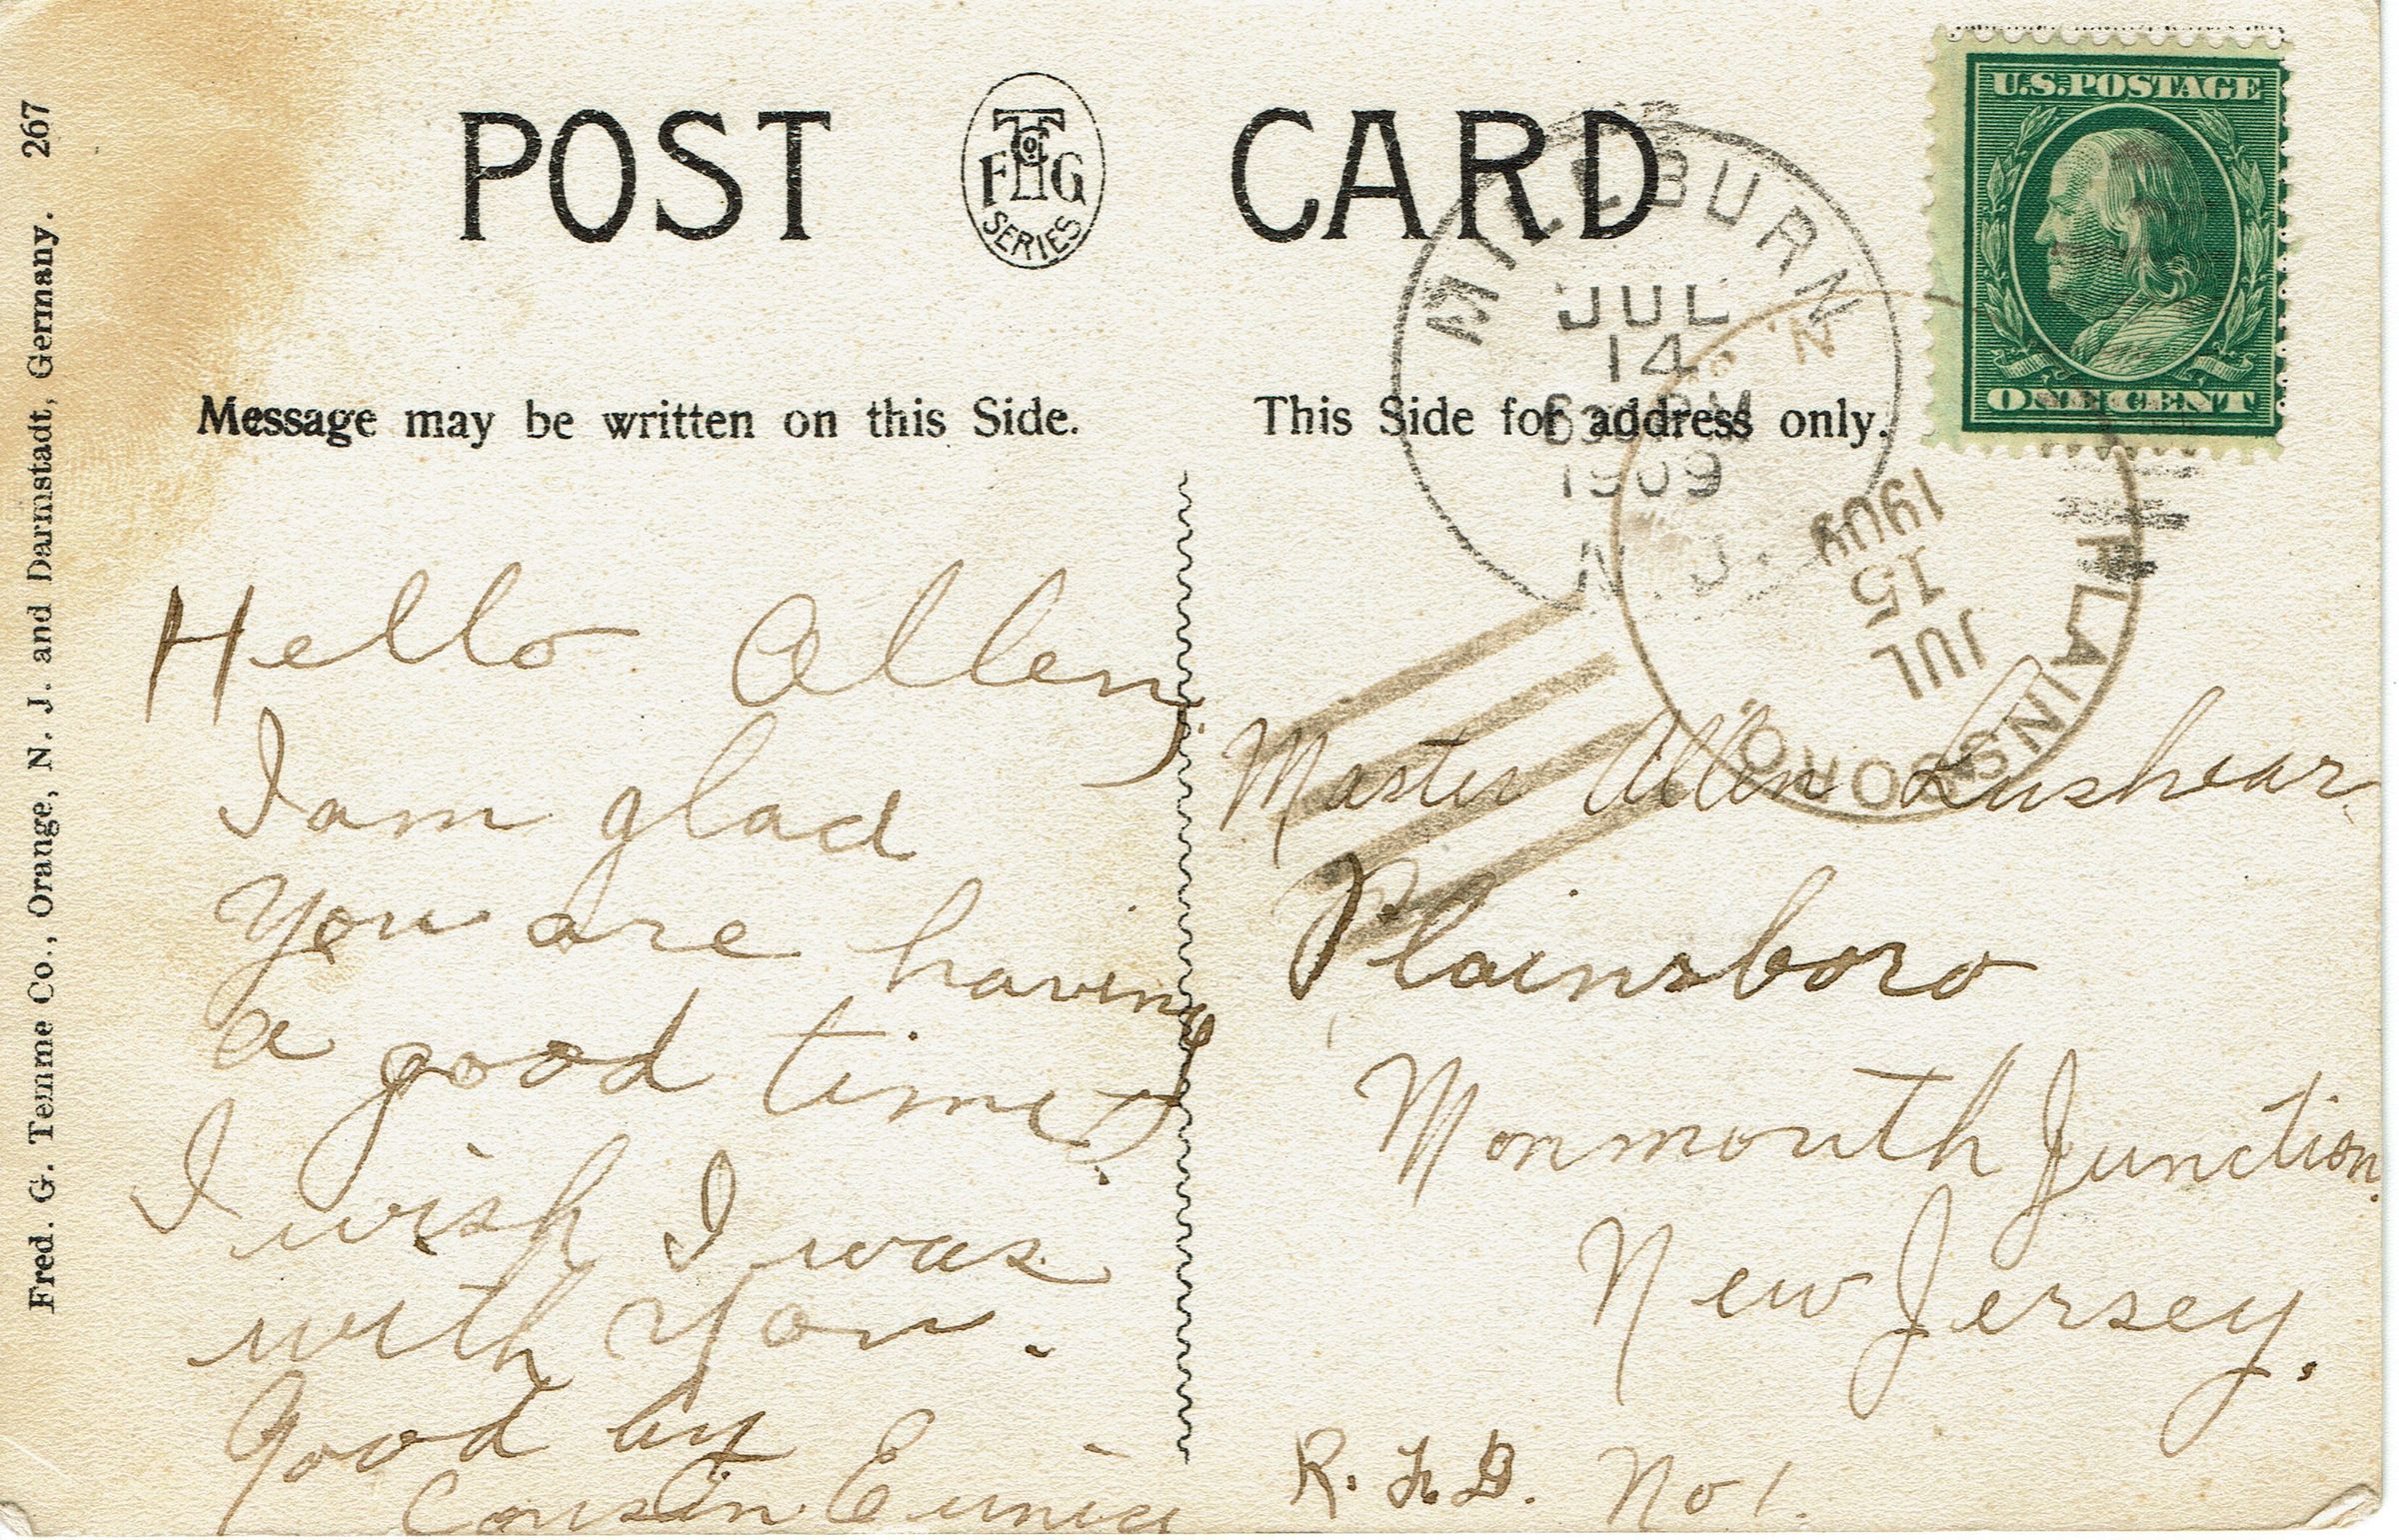 POST CARD
T Co. F H G SERIES
U.S. POSTAGE
ONE CENT
MILLBURN
JUL
14
1909
N. J.
PLAINSBORO.
JUL
15
1909
N.
Message may be written on this Side.
This Side for address only.
Fred. G. Temme Co., Orange, N. J. and Darmstadt, Germany. 267
Hello Allen,
I am glad
you are having
a good time?
I wish I was
with you.
Good by
Cousin Eunice
Master Allen Lushear
Plainsboro
Monmouth Junction.
New Jersey.
R. F. D. No 1.